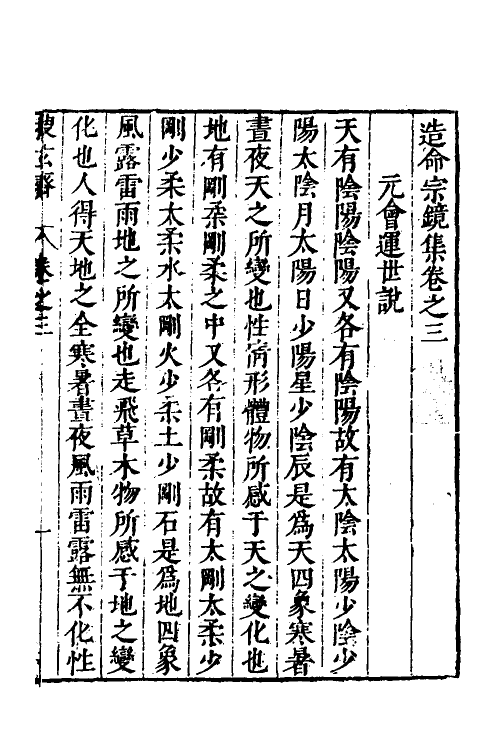 造命宗鏡集卷之三
元會運世說
天有陰陽陰陽又各有陰陽故有太陰太陽少陰少
陽太陰月太陽日少陽星少陰辰是爲天四象寒暑
晝夜天之所變也性情形體物所感于天之變化也
地有剛柔剛柔之中又各有剛柔故有太剛太柔少
剛少柔太柔水太剛火少柔土少剛石是爲地四象
風露雷雨地之所變也走飛草木物所感于地之變
化也人得天地之全寒暑晝夜風雨雷露無不化性
玄齋 卷之三 一